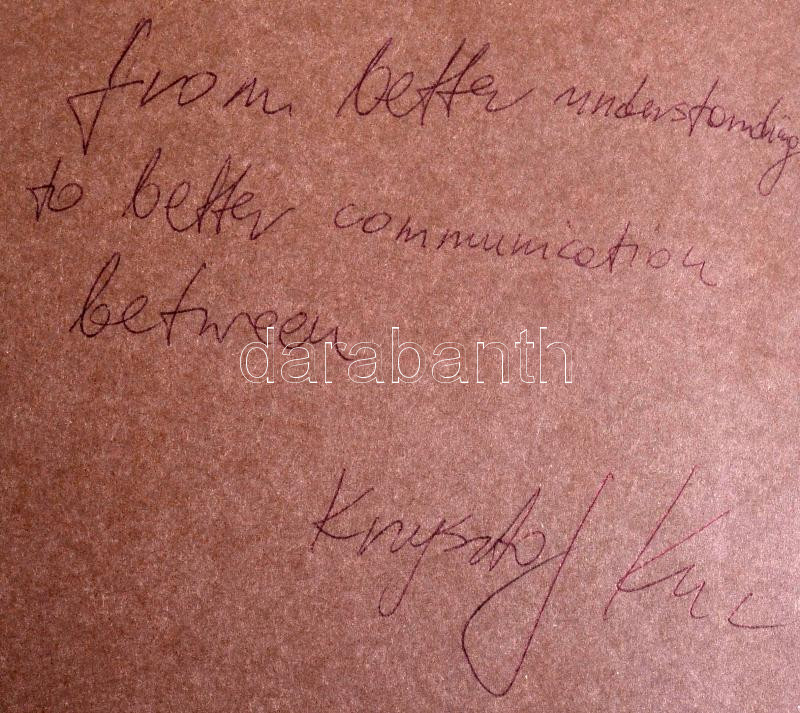 from better understanding
to better communication
between
darabanth
Krysztof